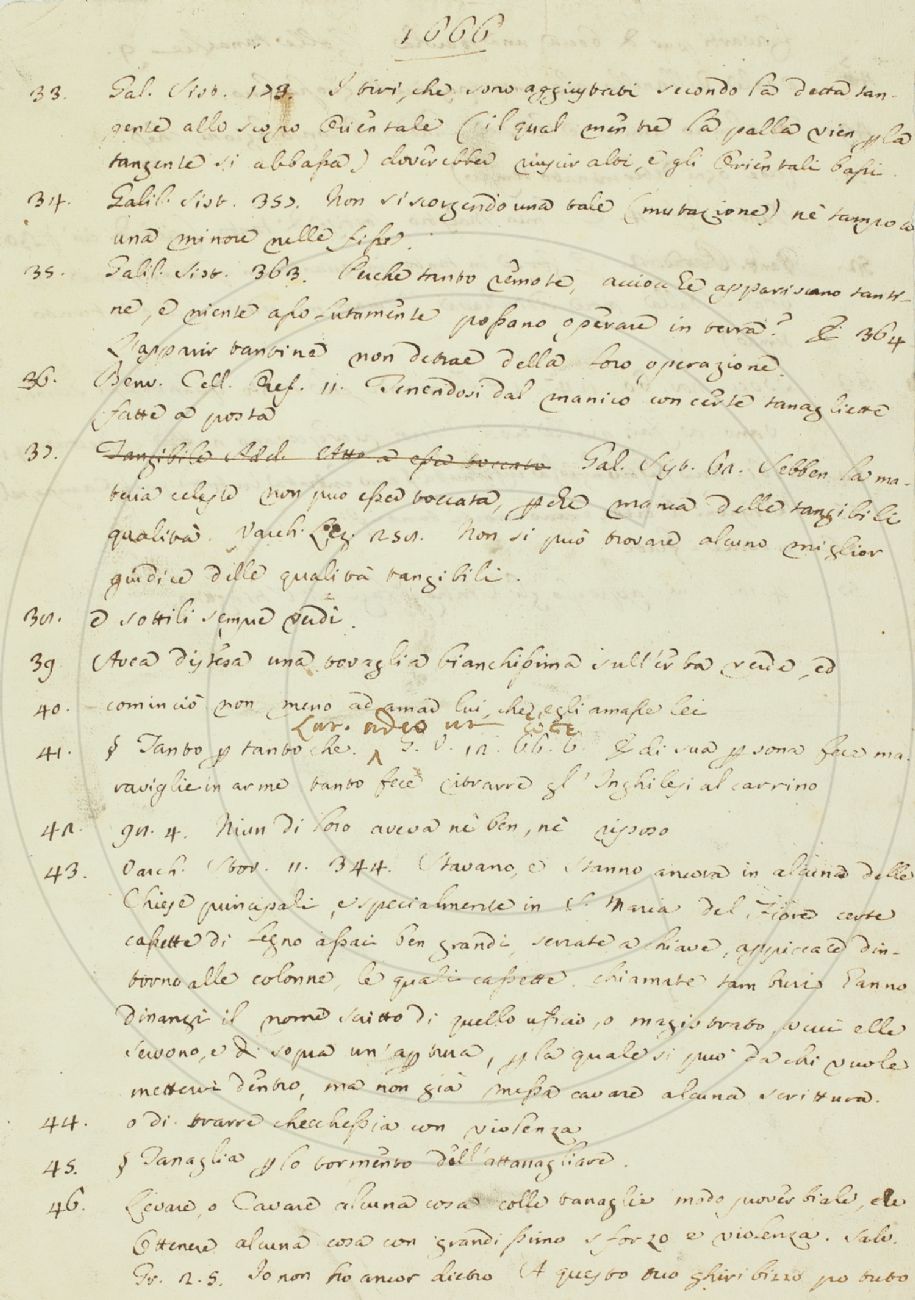 1666
33. Gal. Sist. 173. I tiri, che sono aggiustati secondo la detta tan-
gente allo scopo Orientale (il qual mentre la palla vien p la
tangente si abbassa) doverebber riuscir alti, e gli Orientali bassi.
34. Galil. Sist. 357. Non si scorgendo una tale (mutazione) nè tampoco
una minore nelle fisse.
35. Galil. Sist. 363. Perche tanto remote, acciocchè appariscano tanti-
ne, e niente assolutamente possano operare in terra? E 364
L'apparir tantine non detrae della loro operazione.
36. Benv. Cell. Oref. 11. Tenendosi dal manico con certe tanagliette
fatte a posta
37. Tangibile Add. Atto a esser toccato Gal. Sist. 62. Sebben la ma-
teria celeste non può esser toccata, pchè manca delle tangibili
qualità. Varch. Lez. 251. Non si può trovare alcuno miglior
giudice delle qualità tangibili.
38. e sottili sempre verdi.
39. Avea distesa una tovaglia bianchissima sull'erba verde, ed
40. cominciò non meno ad amar lui, che egli amasse lei
Lat. adeo ut
41. § Tanto p tanto che. G. V. 12. 66. 6. E di sua p sona fece ma-
raviglie in arme tanto fece ritrarre gl'Inghilesi al carrino
42. 92. 4. Niun di loro aveva nè ben, nè riposo
43. Varch. Stor. 11. 344. Stavano, e stanno ancora in alcune delle
Chiese principali, e specialmente in S. Maria del Fiore certe
cassette di legno assai ben grandi, serrate a chiave, appiccate din-
torno alle colonne, le quali cassette chiamate tamburi hanno
dinanzi il nome scritto di quello ufizio, o magistrato, a cui elle
servono, e di sopra un'aptura, p la quale si può da chi vuole
mettervi dentro, ma non già messa cavare alcuna scrittura.
44. o di trarre checchessia con violenza
45. § Tanaglia p lo tormento dell'attanagliare.
46. Levare, o Cavare alcuna cosa colle tanaglie modo proverbiale, e le
Ottenere alcuna cosa con grandissimo sforzo e violenza. Salv.
Gr. 2. 5. Io non ho ancor dietro A questo tuo ghiribizzo po tuto